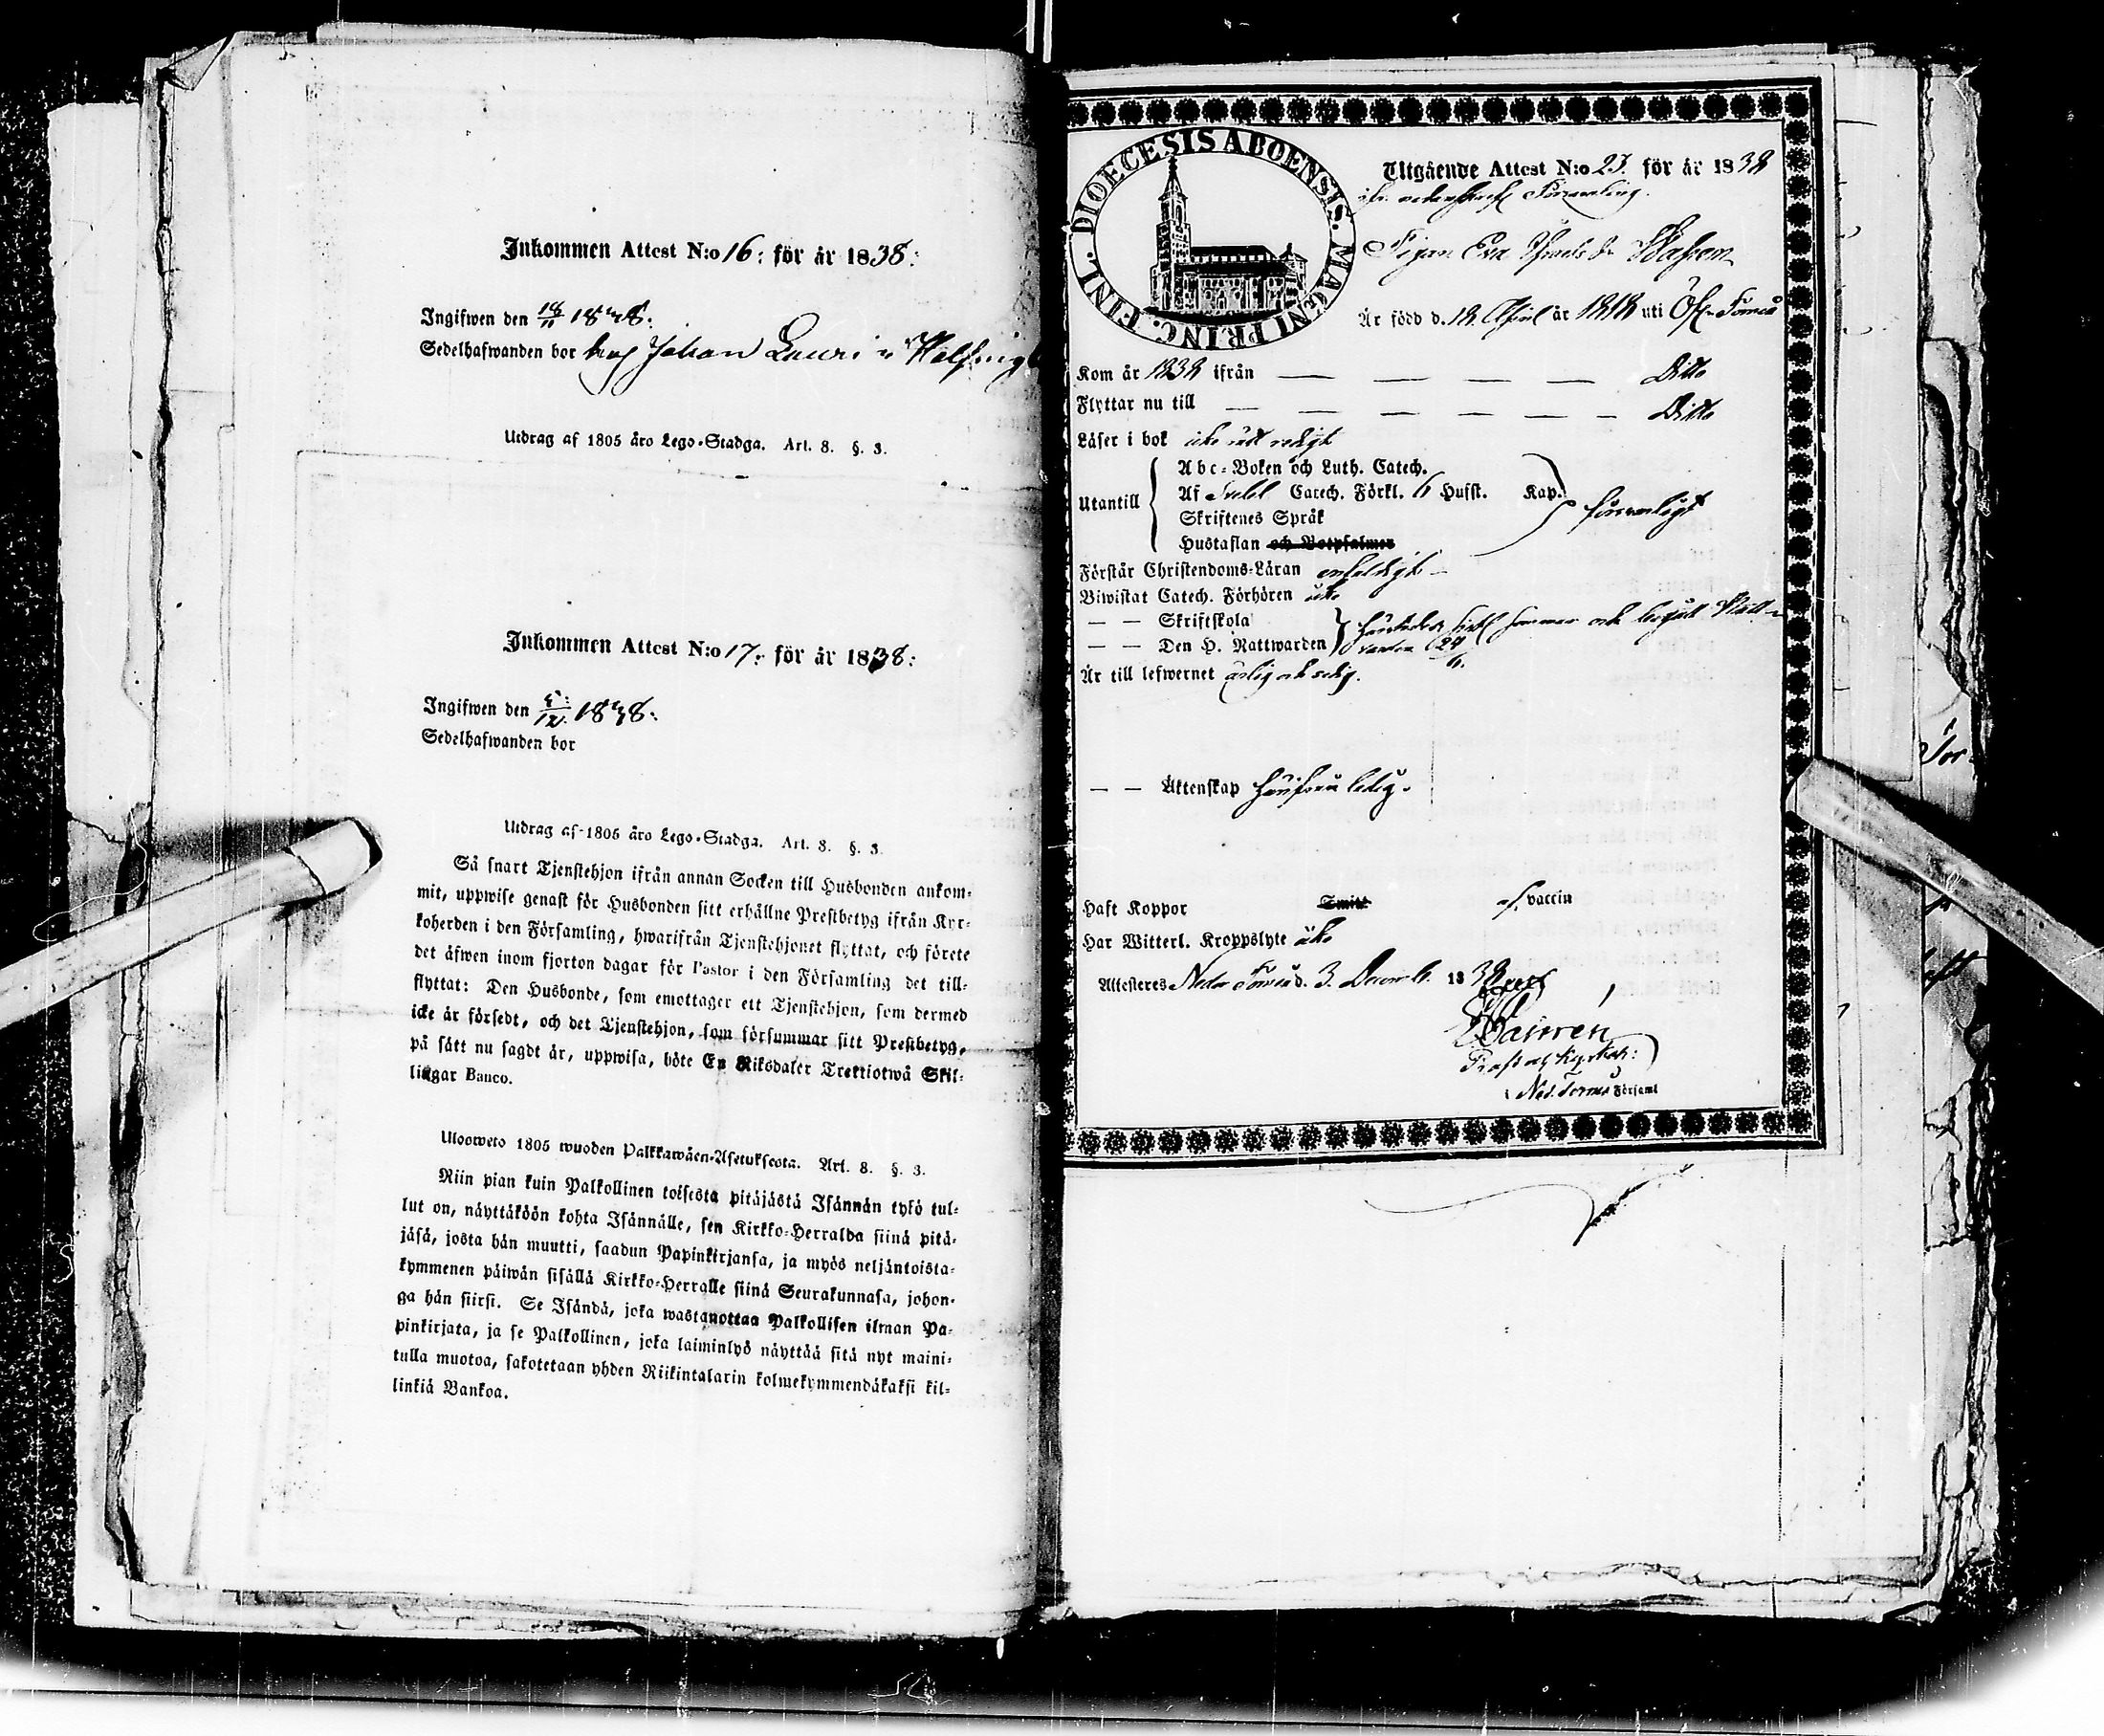 Inkommen Attest N:o 16: för år 1838:
Ingifwen den 18/11 1838:
Sedelhafwanden bor hos Johan Lauri
Utdrag af 1805 åro Lego-Stadga. Art. 8. §. 3.
Inkommen Attest N:o 17: för år 1838:
Ingifwen den 5/12 1838:
Sedelhafwanden bor
Utdrag af 1805 åro Lego-Stadga. Art. 8. §. 3.
Så snart Tjenstehjon ifrån annan Socken till Husbonden ankom-
mit, uppwise genast för Husbonden sitt erhållne Prestbetyg ifrån Kyr-
koherden i den Församling, hwarifrån Tjenstehjonet flyttat, och förete
det äfwen inom fjorton dagar för Pastor i den Församling det till-
flyttat: Den Husbonde, som emottager ett Tjenstehjon, som dermed
icke är försedt, och det Tjenstehjon, som försummar sitt Prestbetyg,
på sått nu sagdt är, uppwisa, böte En Riksdaler Trettiotwå Skil-
lingar Banco.
Ulosweto 1805 wuoden Palkkawäen-Asetuksesta. Art. 8. §. 3.
Niin pian kuin Palkollinen toisesta pitäjästä Isännän tykö tul-
lut on, näyttäköön kohta Isännälle, sen Kirkko-Herralda siinä pitä-
jäsä, josta hän muutti, saadun Papinkirjansa, ja myös neljäntoista-
kymmenen päiwän sisällä Kirkko-Herralle siinä Seurakunnasa, johon-
ga hän siirsi. Se Isändä, joka wastanottaa Palkollisen ilman Pa-
pinkirjata, ja se Palkollinen, joka laiminlyö näyttää sitä nyt maini-
tulla muotoa, sakotetaan yhden Riikintalarin kolmekymmendäkaksi kil-
linkiä Bankoa.
DIOECESIS ABOENSIS. MAGNI PRINC. FINL.
Utgående Attest N:o 23. för år 1838
Församling.
Pigan Eva
Är född d. 18 April år 1818 uti Öfr Torneå
Kom år 1838 ifrån — — — — Ditto
Flyttar nu till — — — — — — Ditto
Läser i bok icke rätt redigt
Utantill
Abc-Boken och Luth. Catech.
Af Svebel Catech. Förkl. 6 Hufst. Kap.
Skriftenes Språk
Hustaflan och Botpsalmer
försvarligt
Förstår Christendoms-Läran enfaldigt
Biwistat Catech. Förhören icke
— — Skriftskola
— — Den H. Nattwarden
Är till lefwernet ärlig och sedig.
— — Äktenskap härifrån ledig.
Haft Koppor Smitt af vaccin
Har Witterl. Kroppslyte icke
Attesteres Neder Torneå d. 3. Decemb. 1838
Ned. Torneå Församl